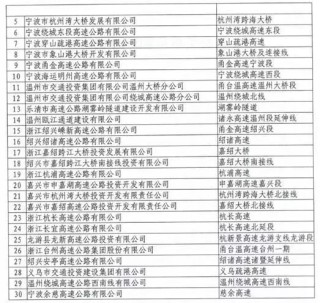 5 宁波市杭州湾大桥发展有限公司 杭州湾跨海大桥
6 宁波绕城东段高速公路有限公司 宁波绕城高速东段
7 宁波穿山疏港高速公路有限公司 穿山疏港高速
8 宁波市象山港大桥开发有限公司 象山港大桥及连接线
9 宁波甬金高速公路有限公司 甬金高速宁波段
10 宁波海运明州高速公路有限公司 宁波绕城高速西段
11 温州市交通投资集团有限公司温州大桥分公司 甬台温高速温州大桥段
12 温州市交通投资集团有限公司绕城高速公路分公司 温州绕城北线
13 乐清市高速公路湖雾岭隧道建设开发有限公司 湖雾岭隧道
14 温州瓯江通道建设有限公司 诸永高速温州段延伸线
15 浙江绍兴嵊新高速公路有限公司 甬金高速绍兴段
16 绍兴绍诸高速公路有限公司 绍诸高速
17 浙江嘉绍跨江大桥投资发展有限公司 嘉绍大桥
18 绍兴市嘉绍跨江大桥南接线投资有限公司 嘉绍大桥南接线
19 浙江杭浦高速公路有限公司 杭浦高速
20 嘉兴市申嘉湖高速公路投资开发有限公司 申嘉湖高速嘉兴段
21 嘉兴市杭州湾大桥投资开发有限责任公司 杭州湾跨海大桥北接线
22 嘉兴市嘉绍高速公路投资开发有限责任公司 嘉绍大桥北接线
23 浙江杭长高速公路有限公司 杭长高速
24 浙江长宜高速公路有限公司 杭长高速北延段
25 龙游县龙新高速公路投资有限公司 杭新景高速龙游支线龙游段
26 浙江台州高速公路集团股份有限公司 甬台温高速台州一期
27 绍兴安亭高速公路有限公司 绍诸高速诸暨延伸线
28 义乌市交通投资建设集团有限公司 义乌疏港高速
29 温州绕城高速公路西南线有限公司 温州绕城高速西南线
30 宁波余慈高速公路有限公司 慈余高速